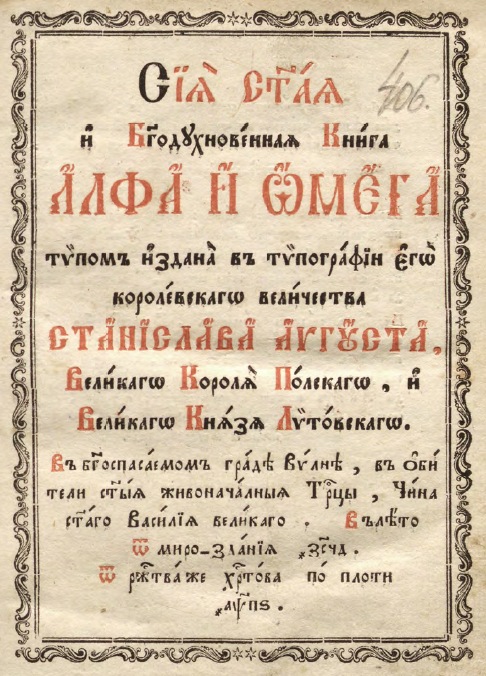 Сїѧ̀ ст҃аѧ
406.
и҆ Бг҃одꙋхнове́ннаѧ Кни́га
А҆́ЛФА И҆̀ Ѡ҆МЕ́ГА
тѵ́помъ и҆́здана̀ въ тѵпогра́фїи є҆гѡ̀
короле́вскагѡ вели́чества
СТАНИСЛА́ВА А҆́ѴГꙊСТА,
Вели́кагѡ Королѧ̀ По́лскагѡ, и҆
Вели́кагѡ Кнѧ́зѧ Лѵто́вскагѡ.
Въ бг҃оспаса́емомъ гра́дѣ Вѵ́лнѣ, въ ѻ҆би́
тели ст҃ы́ѧ живонача́лныѧ Трⷪ҇цы, Чи́на
ст҃а́го Васи́лїѧ вели́каго. Въ лѣ́то
ѿ миро-зда́нїѧ ҂зс҃чд.
ѿ рж҃тва́ же хр҃то́ва по́ плоти
҂аѱ҃пѕ.